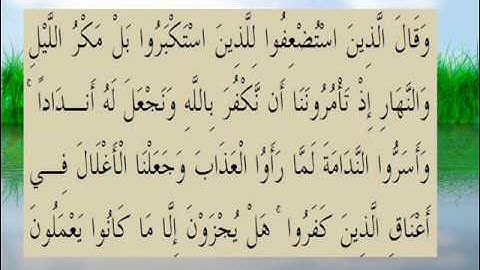 وَقَالَ الَّذِينَ اسْتُضْعِفُوا لِلَّذِينَ اسْتَكْبَرُوا بَلْ مَكْرُ اللَّيْلِ
وَالنَّهَارِ إِذْ تَأْمُرُونَنَا أَن نَّكْفُرَ بِاللَّهِ وَنَجْعَلَ لَهُ أَنــدَاداً ۚ
وَأَسَرُّوا النَّدَامَةَ لَمَّا رَأَوُا الْعَذَابَ وَجَعَلْنَا الْأَغْلَالَ فِــي
أَعْنَاقِ الَّذِينَ كَفَرُوا ۚ هَلْ يُجْزَوْنَ إِلَّا مَا كَانُوا يَعْمَلُونَ